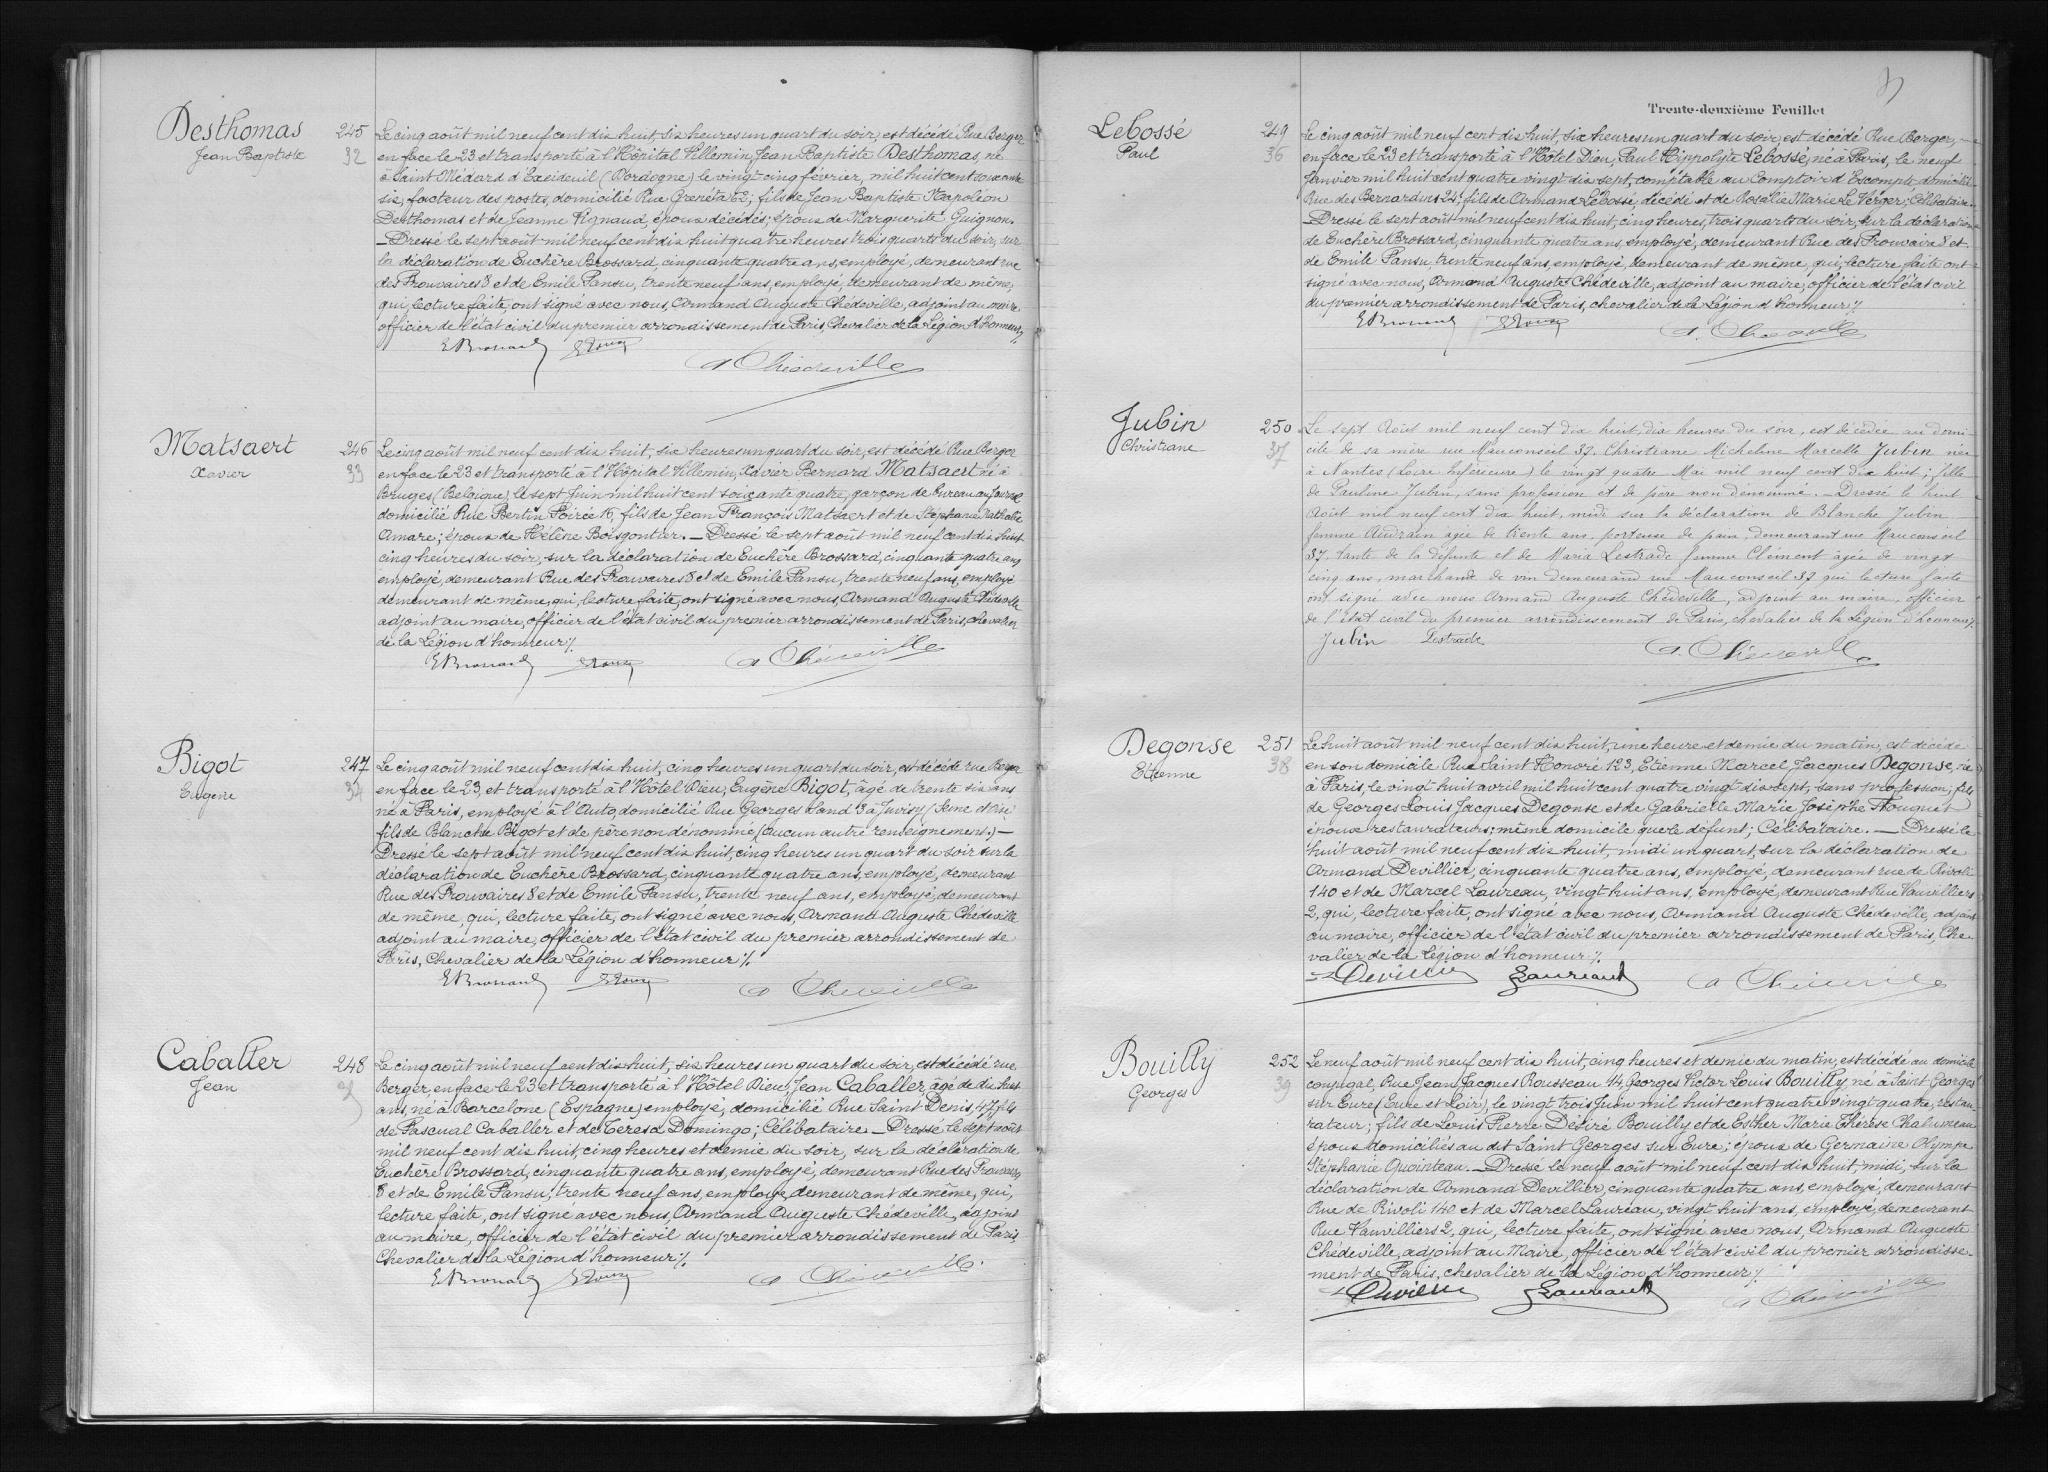 Desthomas
Jean Baptiste
245
32
Le cinq août mil neuf cent dix huit, six heures un quart du soir, est décédé Rue Berger
en face le 23 et transporté à l'Hôpital Villemin, Jean Baptiste Desthomas, né
à Saint Médard d'Exeideuil (Dordogne) le vingt cinq février, mil huit cent soixante
six, facteur des postes, domicilié Rue Grenéta 62; fils de Jean Baptiste Napoléon
Desthomas et de Jeanne Vignaud, époux décédés; époux de Marguerite Guignon.
_Dressé le sept août mil neuf cent dix huit quatre heures trois quarts du soir, sur
la déclaration de Euchère Brossard, cinquante quatre ans, employé, demeurant rue
des Prouvaires 8 et de Emile Pansu, trente neuf ans, employé, demeurant de même,
qui, lecture faite, ont signé avec nous, Armand Auguste Chédeville, adjoint au maire
officier de l'état civil du premier arrondissement de Paris, Chevalier de la Légion d'honneur ⁒
EBrossard
A Chédeville
Matsaert
Xavier
246
33
Le cinq août mil neuf cent dix huit, six heures un quart du soir, est décédé Rue Berger
en face le 23 et transporté à l'Hôpital Villemin, Xavier Bernard Matsaert né à
Bruges (Belgique), le sept Juin mil huit cent soixante quatre, garçon de bureau au Journal
domicilié Rue Bertin Poirée 16, fils de Jean François Matsaert et de Stéphanie Nathalie
Amare; époux de Hélène Boisgontier. _ Dressé le sept août mil neuf cent dix huit
cinq heures du soir, sur la déclaration de Euchère Brossard, cinquante quatre ans
employé, demeurant Rue des Prouvaires 8 et de Emile Pansu, trente neuf ans, employé
demeurant de même, qui, lecture faite, ont signé avec nous, Armand Auguste Chédeville
adjoint au maire, officier de l'état civil du premier arrondissement de Paris, chevalier
de la Légion d'honneur ⁒
EBrossard
A Chédeville
Bigot
Eugène
247
34
Le cinq août mil neuf cent dix huit, cinq heures un quart du soir, est décédé rue Berger
en face le 23, et transporté à l'Hôtel Dieu, Eugène Bigot, âgé de trente six ans
né à Paris, employé à l'Auto, domicilié Rue Georges Sand 13 à Juvisy (Seine et Oise
fils de Blanche Bigot et de père non dénommé (aucun autre renseignement.) _
Dressé le sept août mil neuf cent dix huit, cinq heures un quart du soir sur la
déclaration de Euchère Brossard, cinquante quatre ans, employé, demeurant
Rue des Prouvaires 8 et de Emile Pansu, trente neuf ans, employé, demeurant
de même, qui, lecture faite, ont signé avec nous, Armand Auguste Chédeville
adjoint au maire, officier de l'état civil du premier arrondissement de
Paris, Chevalier de la Légion d'honneur ⁒
EBrossard
A Chédeville
Caballer
Jean
248
35
Le cinq août mil neuf cent dix huit, six heures un quart du soir, est décédé rue
Berger, en face le 23 et transporté à l'Hôtel Dieu, Jean Caballer, âgé de dix huit
ans, né à Barcelone (Espagne) employé, domicilié Rue Saint Denis, 47, fils
de Pascual Caballer et de Teresa Domingo; Célibataire _ Dressé le sept août
mil neuf cent dix huit, cinq heures et demie du soir, sur la déclaration de
Euchère Brossard, cinquante quatre ans, employé, demeurant Rue des Prouvaires
8 et de Emile Pansu, trente neuf ans, employé, demeurant de même, qui,
lecture faite, ont signé avec nous, Armand Auguste Chédeville, adjoint
au maire, officier de l'état civil du premier arrondissement de Paris,
Chevalier de la Légion d'honneur ⁒
EBrossard
A Chédeville
Trente-deuxième Feuillet
Lebossé
Paul
249
36
Le cinq août mil neuf cent dix huit, six heures un quart du soir, est décédé Rue Berger,
en face le 23 et transporté à l'Hôtel Dieu, Paul Hippolyte Lebossé, né à Paris, le neuf
Janvier mil huit cent quatre vingt dix sept, comptable au Comptoir d'Escompte, domicilié
Rue des Bernardins 24; fils de Armand Lebossé, décédé et de Rosalie Marie Le Verger; Célibataire.
_Dressé le sept août mil neuf cent dix huit, cinq heures, trois quarts du soir, sur la déclaration
de Euchère Brossard, cinquante quatre ans, employé, demeurant Rue des Prouvaire 8 et
de Emile Pansu trente neuf ans, employé, demeurant de même, qui, lecture faite ont
signé avec nous, Armand Auguste Chédeville, adjoint au maire, officier de l'état civil
du premier arrondissement de Paris, chevalier de la Légion d'honneur ⁒
EBrossard
A. Chédeville
Jubin
Christiane
250
37
Le sept Août mil neuf cent dix huit, dix heures du soir, est décédée au domi-
cile de sa mère rue Mauconseil 37, Christiane Micheline Marcelle Jubin née
à Nantes (Loire Inférieure) le vingt quatre Mai mil neuf cent dix huit; fille
de Pauline Jubin, sans profession et de père non dénommé. _ Dressé le huit
Août mil neuf cent dix huit, midi sur la déclaration de Blanche Jubin
femme Audrain âgée de trente ans, porteuse de pain, demeurant rue Mauconseil
37, tante de la défunte et de Maria Lestrade femme Clément âgée de vingt
cinq ans, marchande de vin demeurant rue Mauconseil 37 qui lecture faite
ont signé avec nous Armand Auguste Chédeville, adjoint au maire, officier
de l'état civil du premier arrondissement de Paris, chevalier de la Légion d'honneur ⁒
Jubin Lestrade
A. Chédeville
Degonse
Etienne
251
38
Le huit août mil neuf cent dix huit, une heure et demie du matin, est décédé
en son domicile Rue Saint Honoré 123, Etienne Marcel Jacques Degonse, né
à Paris, le vingt huit avril mil huit cent quatre vingt dix sept, sans profession; fils
de Georges Louis Jacques Degonse et de Gabrielle Marie Josèphe Fouquet
époux restaurateurs; même domicile que le défunt; Célibataire. _ Dressé le
huit août mil neuf cent dix huit, midi un quart, sur la déclaration de
Armand Devillier, cinquante quatre ans, employé, demeurant rue de Rivoli
140 et de Marcel Laureau, vingt huit ans, employé, demeurant Rue Vauvilliers
2, qui, lecture faite, ont signé avec nous, Armand Auguste Chédeville, adjoint
au maire, officier de l'état civil du premier arrondissement de Paris, Che-
valier de la Légion d'honneur ⁒
Devillier Laureau
A Chédeville
Bouilly
Georges
252
39
Le neuf août mil neuf cent dix huit, cinq heures et demie du matin, est décédé au domicile
conjugal, Rue Jean Jacques Rousseau 14, Georges Victor Louis Bouilly, né à Saint Georges
sur Eure (Eure et Loir), le vingt trois Juin mil huit cent quatre vingt quatre, restau-
rateur; fils de Louis Pierre Désiré Bouilly et de Esther Marie Thérèse Chaluveau
époux domiciliés au dit Saint Georges sur Eure; époux de Germaine Olympe
Stéphanie Quointeau. _ Dressé le neuf août mil neuf cent dix huit, midi, sur la
déclaration de Armand Devillier, cinquante quatre ans, employé, demeurant
Rue de Rivoli 140 et de Marcel Laureau, vingt huit ans, employé, demeurant
Rue Vauvilliers 2, qui, lecture faite, ont signé avec nous, Armand Auguste
Chédeville, adjoint au Maire, officier de l'état civil du premier arrondisse-
ment de Paris, chevalier de la Légion d'honneur ⁒
Devillier Laureau
A Chédeville